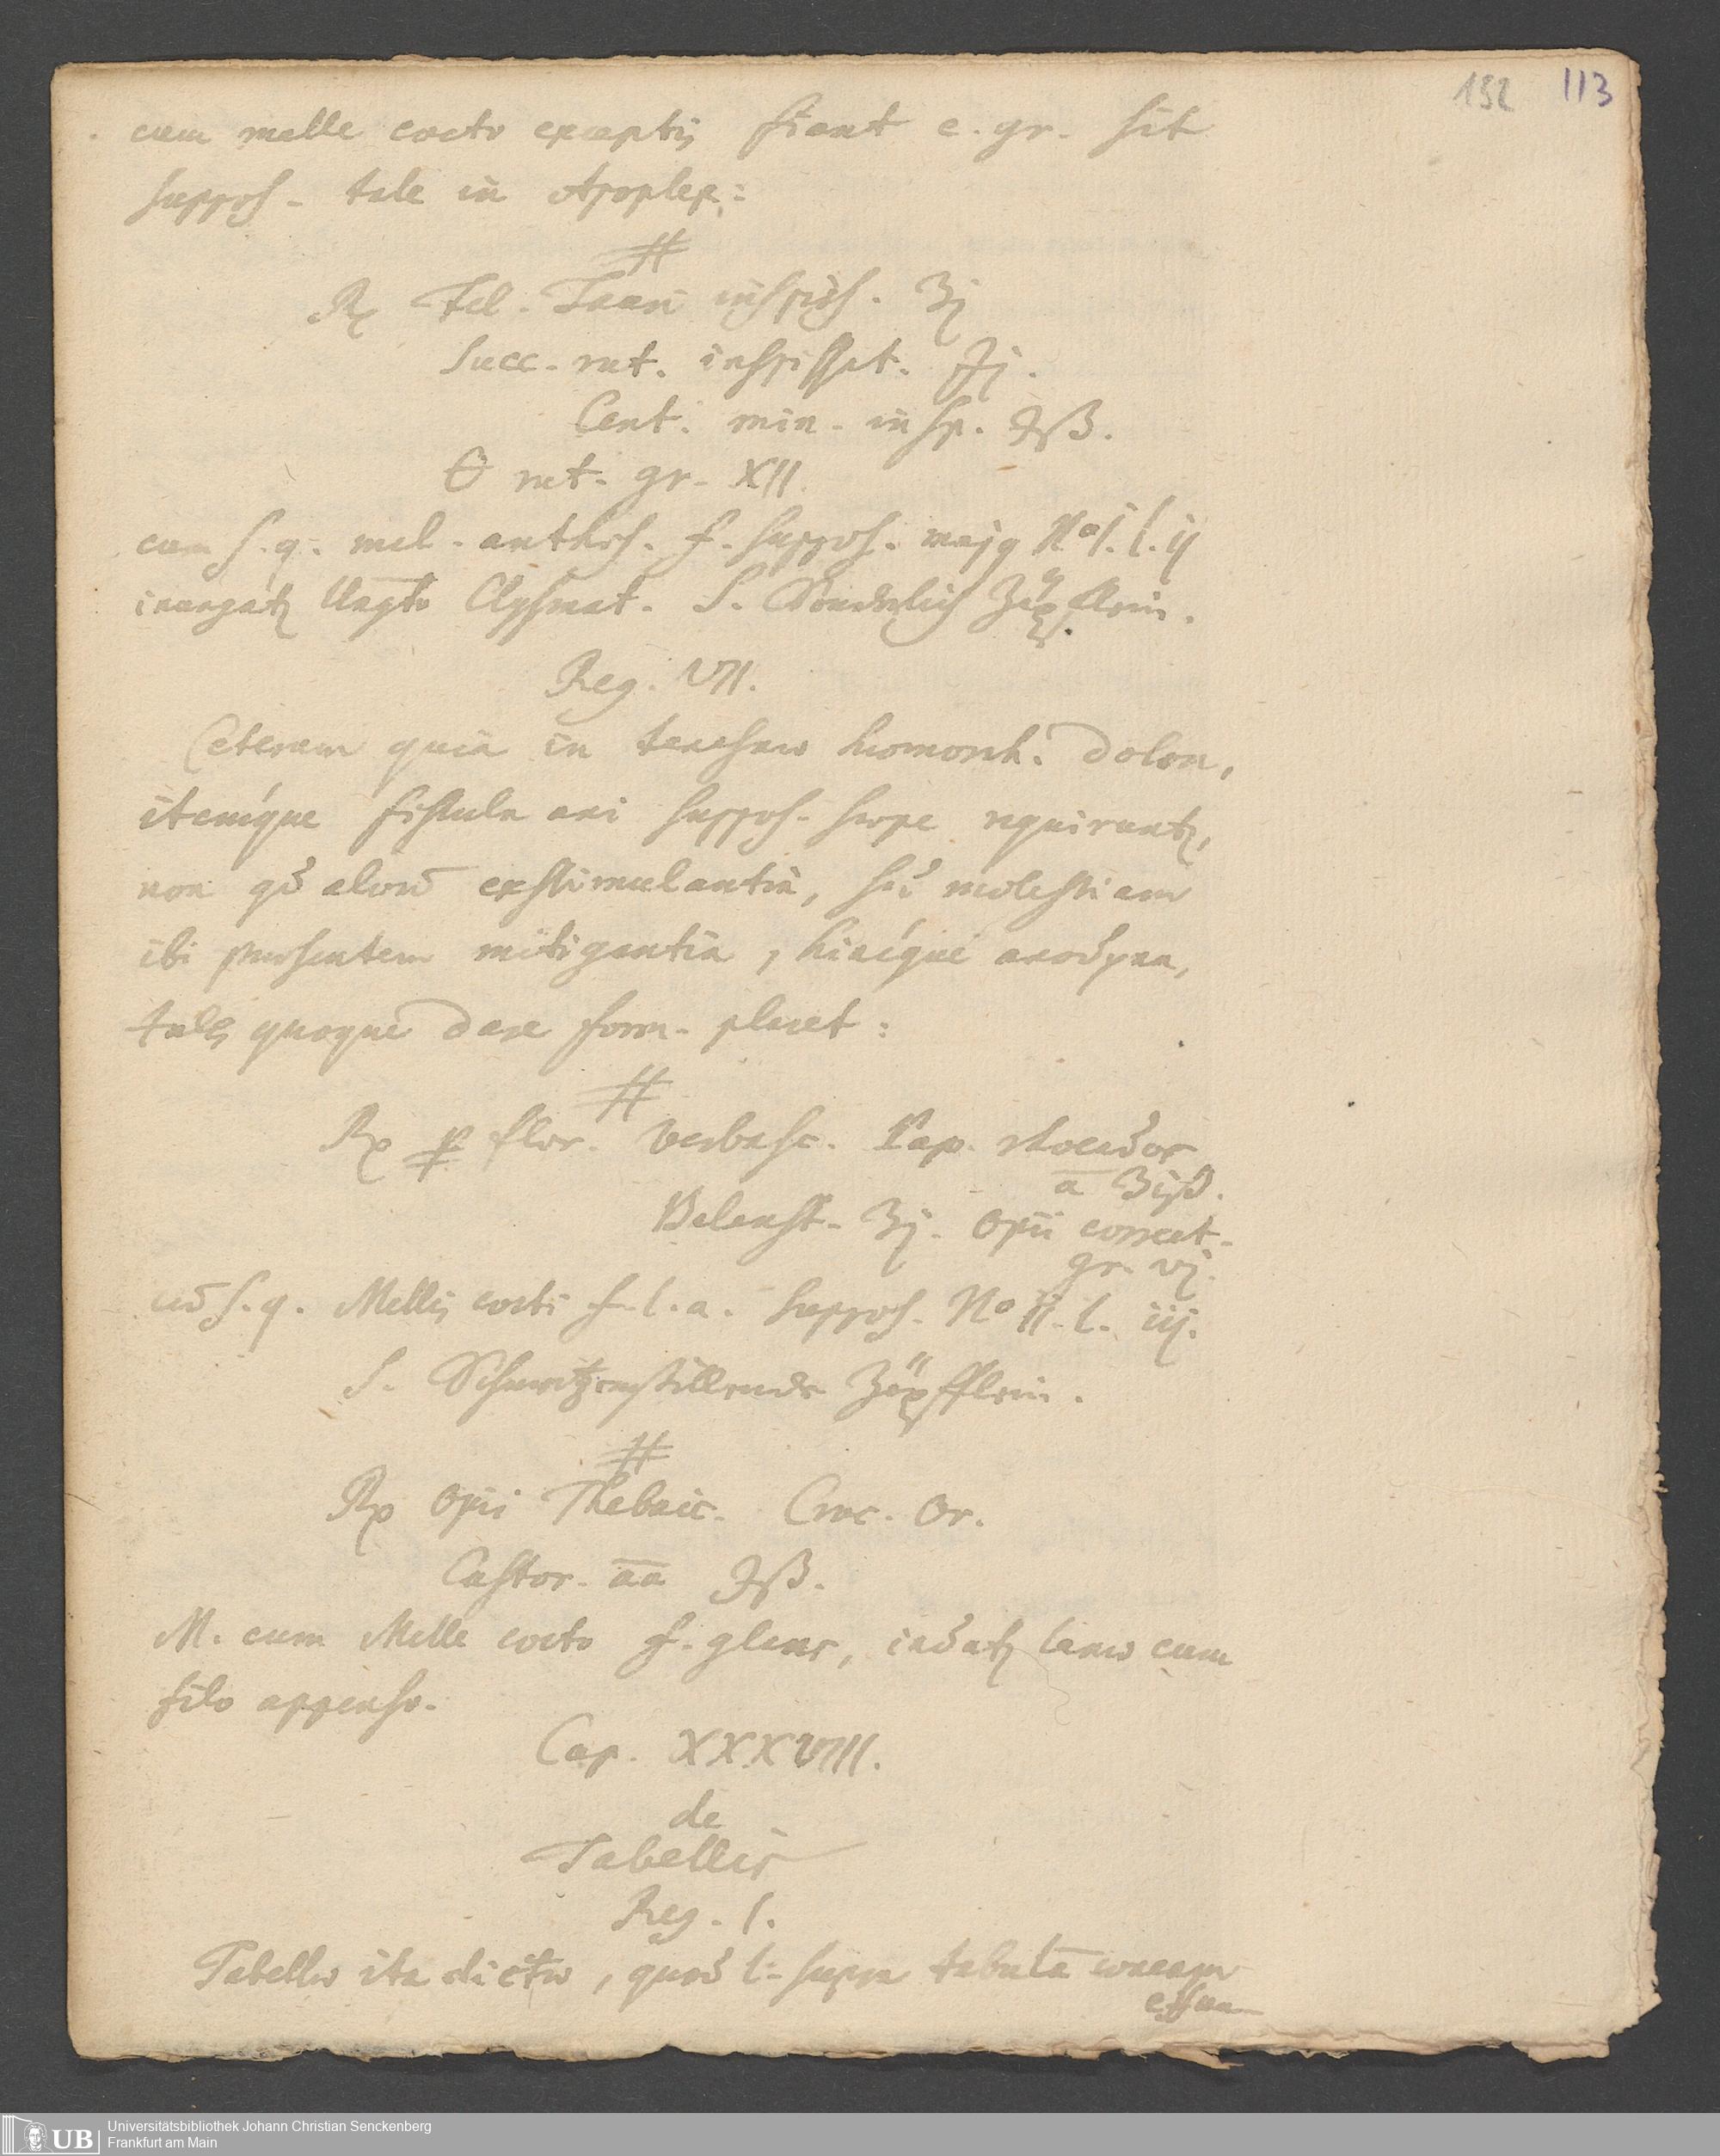 152 113
cum melle cocto exceptis fiant e. gr. sit
suppos. tale in Apoplex:
#
Rx Fel. Tauri inspiss. ʒj
Succ. rut. inspissat. ʒj.
Cent. min. insp. ℈ß.
rut. gr. XII.
cum s. q. mel. anthos. f. suppos. majq No I. l. ij
inungatr Ungto Clysmat. S. Sonderlich Zäpfflein.
Reg. VII.
Ceterum quia in tenesmo hæmorrh. dolor,
itemque fistula ani suppos. sæpe requiruntr,
non qd alvum exstimulantia, sed molestiam
ibi præsentem mitigantia, hincque anodyna,
tales quoque dare form. placet:
#
Rx flor. Verbasc. Pap. rhoeados
a ʒiß.
Belenst. ʒj. Opii correct.
gr. vj.
cum s. q. Mellis cocti f. l. a. suppos. No II. l. iij.
S. Schmertzenstillende Zäpfflein.
#
Rx Opii Thebaic. Croc. Or.
Castor. aa ℈ß.
M. cum Melle cocto f. glans, indatr lanæ cum
filo appenso.
Cap. XXXVIII.
de
Tabellis
Reg. I.
Tabellæ ita dictæ, quod supra tabulā
effun
UB Universitätsbibliothek Johann Christian Senckenberg
Frankfurt am Main